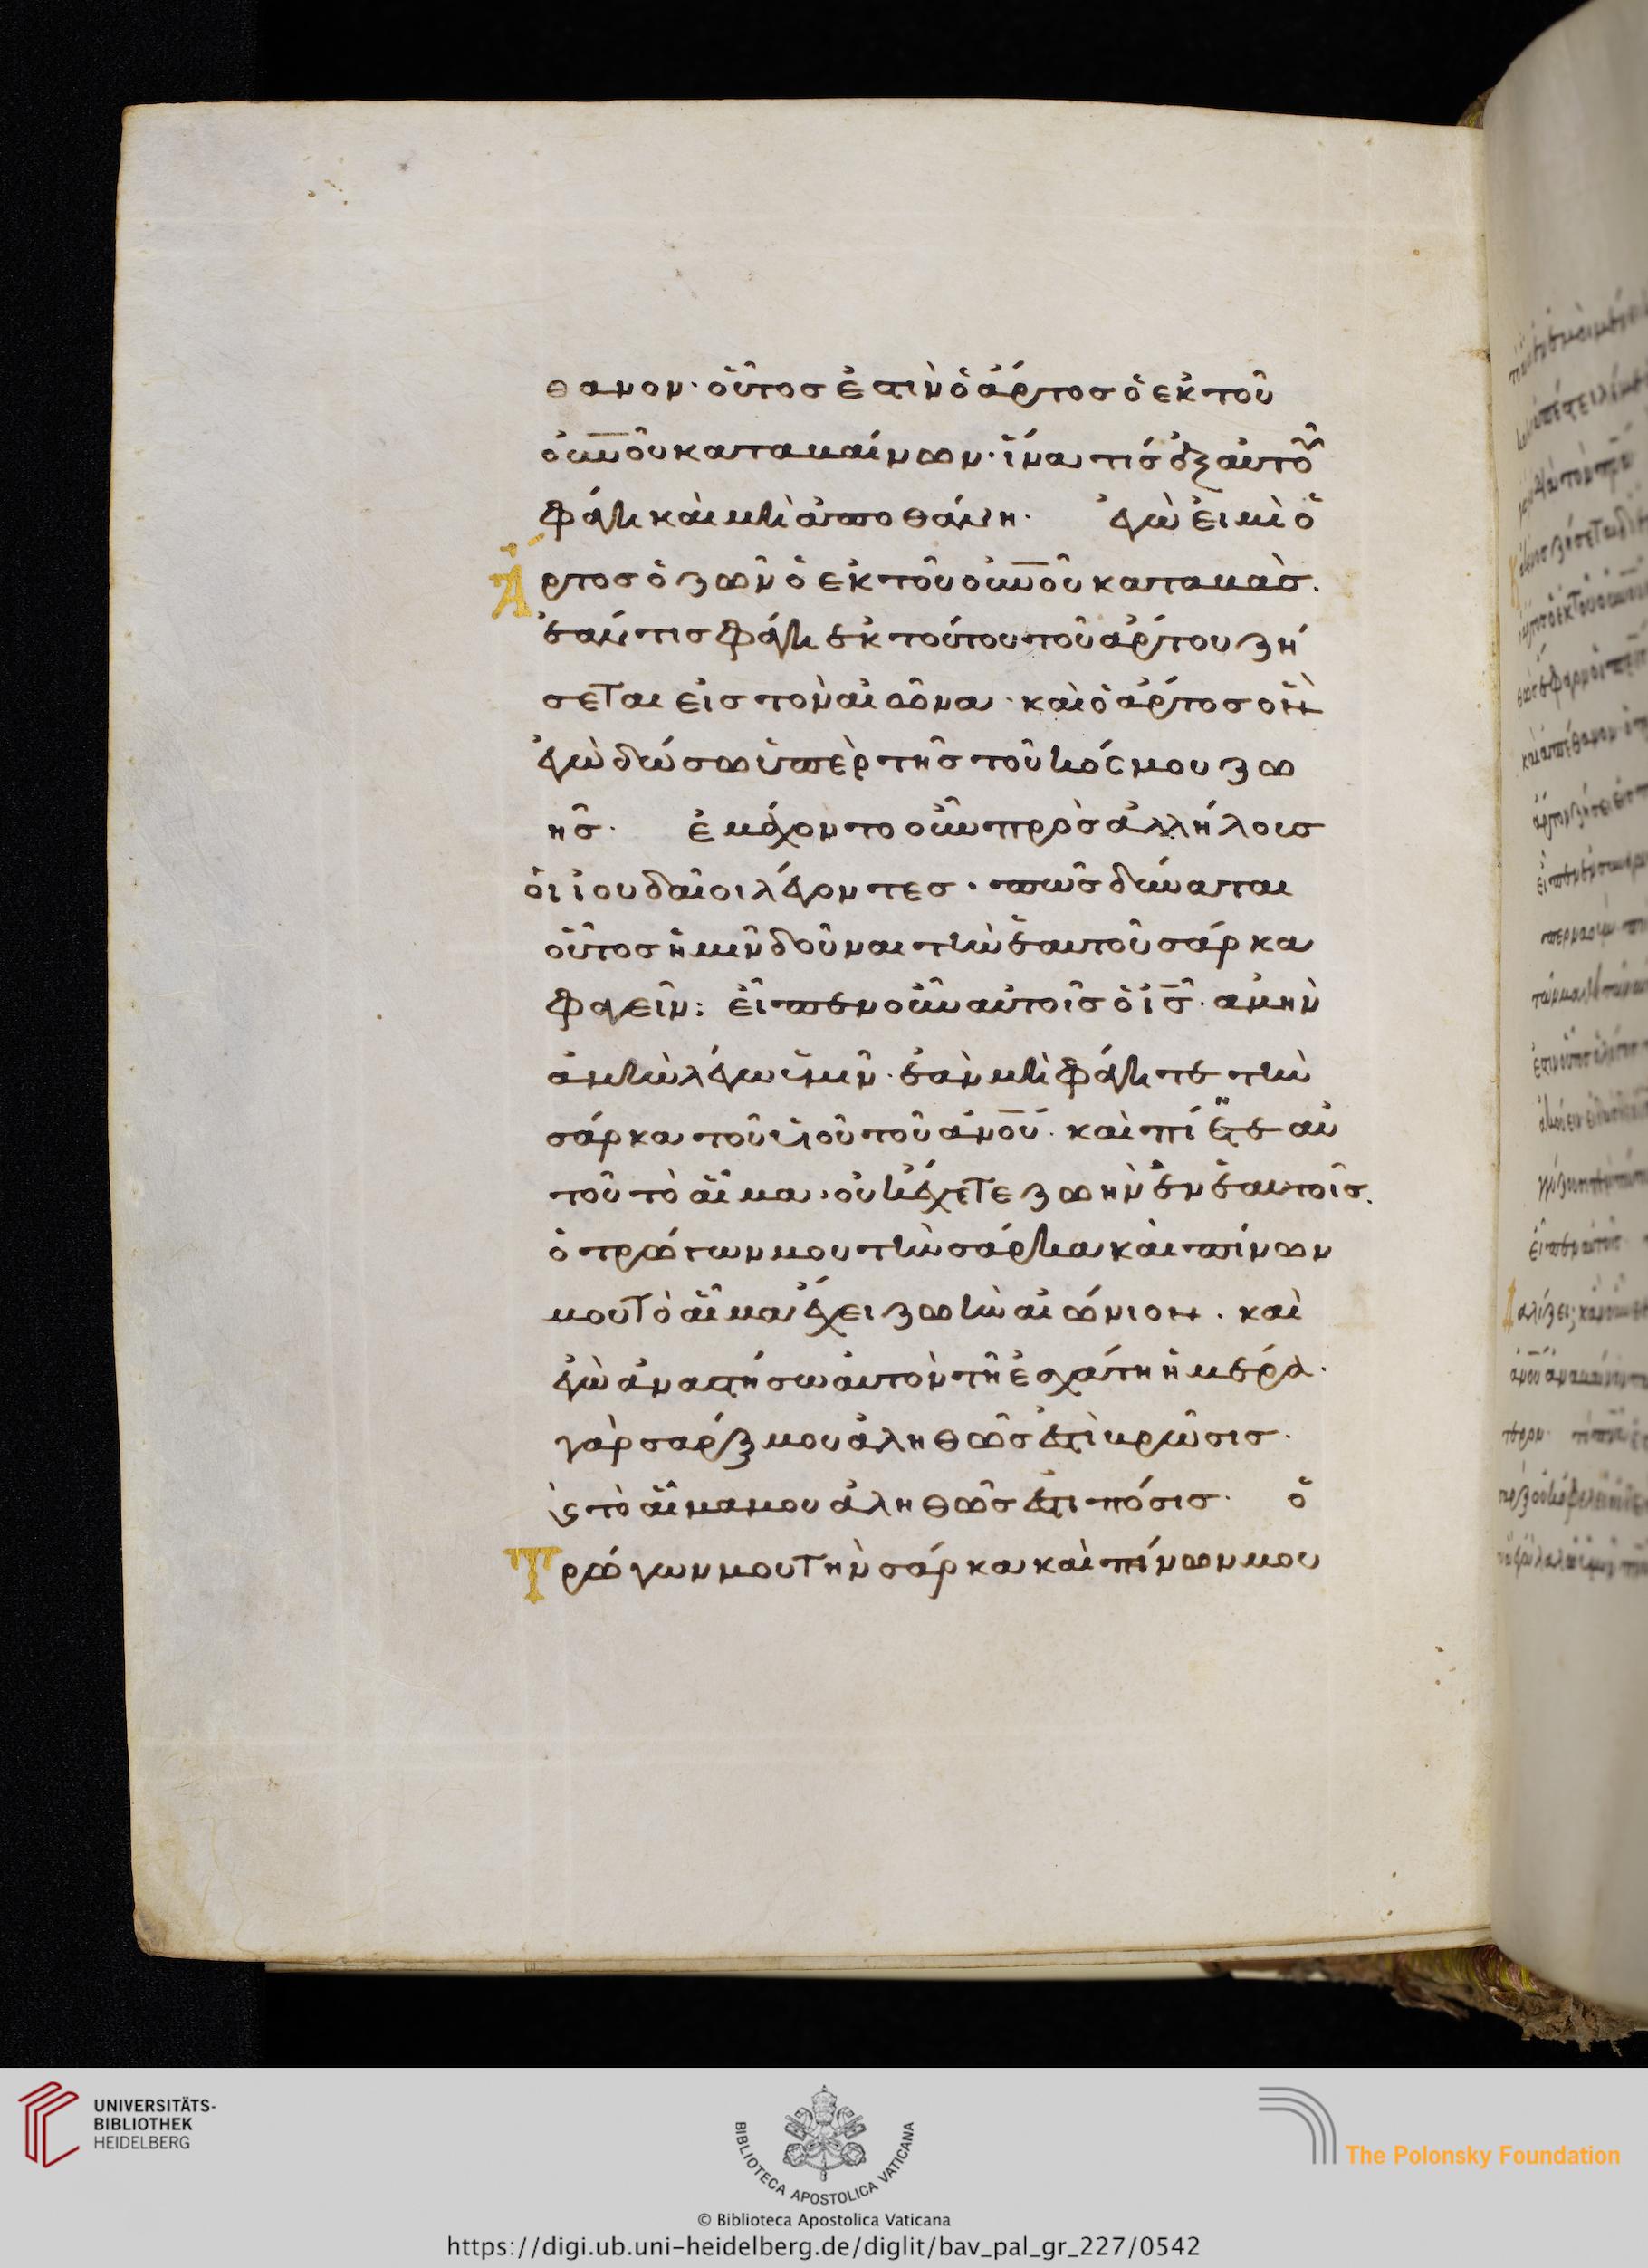 θανον· οὗτος ἐστὶν ὁ ἄρτος ὁ ἐκ τοῦ
οὐ̅νου καταβαίνων· ἵνα τίς ἐξ αὐτοῦ
φάγη καὶ μὴ ἀποθάνη· ἐγὼ εἰμὶ ὁ
ἄρτος ὁ ζῶν ὁ ἐκ τοῦ οὐ̅νου καταβὰς.
ἐάν τις φάγη ἐκ τούτου τοῦ ἄρτου ζή
σεται εἰς τὸν αἰῶνα· καὶ ὁ ἄρτος ὃν
ἐγὼ δώσω ὑπὲρ τῆς τοῦ κόσμου ζω
ῆς· ἐμάχοντο οὖν πρὸς ἀλλήλους
οἱ ἰουδαῖοι λέγοντες· πῶς δύναται
οὗτος ἡμῖν δοῦναι τὴν ἑαυτοῦ σάρκα
φαγεῖν: εἶπεν οὖν αὐτοῖς ὁ ι̅ς̅· ἀμὴν
ἀμὴν λέγω ὑμῖν· ἐὰν μὴ φάγητε τὴν
σάρκα τοῦ υἱοῦ τοῦ α̅ν̅ο̅υ̅· καὶ πίητε αὐ
τοῦ τὸ αἷμα· οὐκ ἔχετε ζωὴν ἐν ἑαυτοῖς.
ὁ τρώγων μου τὴν σάρκα καὶ πίνων
μου τὸ αἷμα ἔχει ζωὴν αἰώνιον· καὶ
ἐγὼ ἀναστήσω αὐτὸν τῆ ἐσχάτη ἡμέρα·
γὰρ σάρξ μου ἀληθῶς ἐστὶ βρῶσις·
ϗ τὸ αἷμα μου ἀληθῶς ἐστι πόσις· ὁ
Τρώγων μου τὴν σάρκα καὶ πίνων μου
UNIVERSITÄTS-
BIBLIOTHEK
HEIDELBERG
BIBLIOTECA APOSTOLICA VATICANA
The Polonsky Foundation
© Biblioteca Apostolica Vaticana
https://digi.ub.uni-heidelberg.de/diglit/bav_pal_gr_227/0542